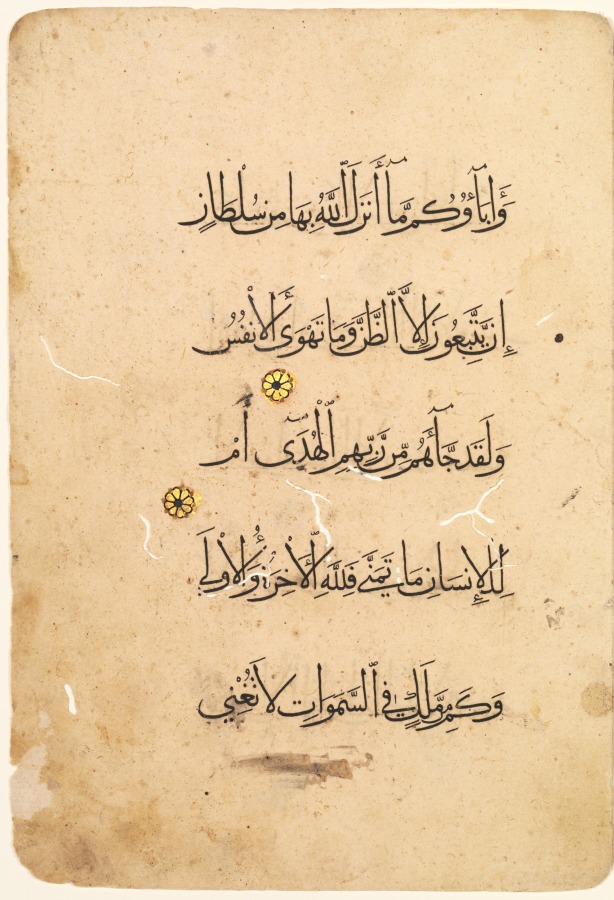 وَاٰبَآؤُكُم مَّآ أَنزَلَ ٱللَّهُ بِهَا مِن سُلْطَانٍ
إِن يَتَّبِعُونَ إِلَّا ٱلظَّنَّ وَمَا تَهْوَى ٱلْأَنفُسُ
وَلَقَد جَّآءَهُم مِّن رَّبِّهِمُ ٱلْهُدَى أَمْ
لِلْإِنسَانِ مَا تَمَنَّى فَلِلَّهِ ٱلْأَخِرَةُ وَٱلْأُولَى
وَكَم مِّن مَّلَكٍ فِي ٱلسَّمَوَاتِ لَا تُغْنِي